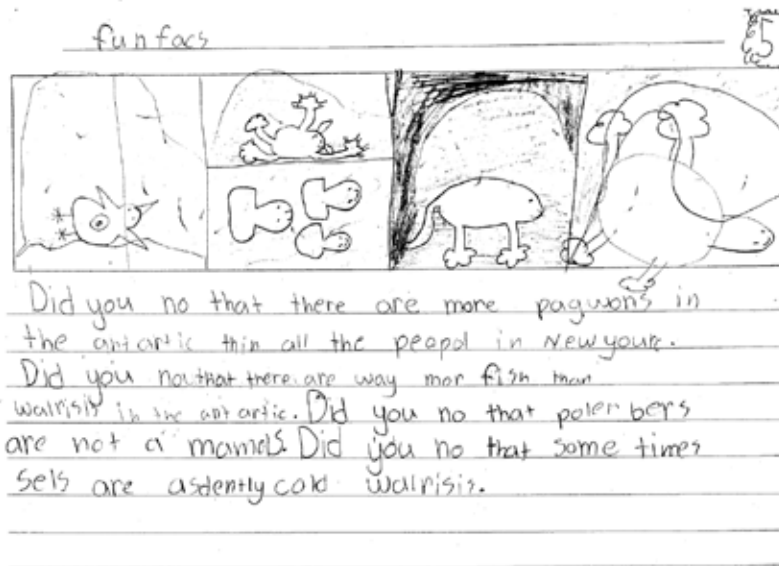 fun facs
5
Did you no that there are more pagwons in
the antartic thin all the peapol in Newyourc.
Did you nou that there are way mor fish than
walrisis in the antartic. Did you no that poler bers
are not a mamols. Did you no that some times
sels are asdently cold walrisis.